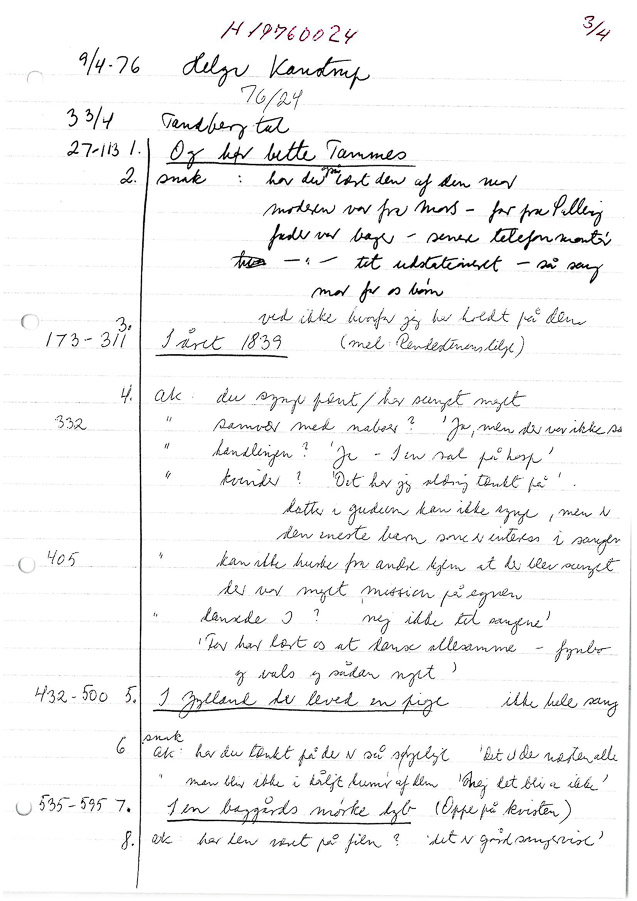 H 19760024
3/4
9/4-76 Helge Kandrup
76/24
3 3/4 Tandberg tal
27-113 1. Og hør bette Tammes
2. snak : har du lært den af den mor
moderen var fra Mors - far fra Salling
fader var bager - senere telefonmontør
-"- tit udstationeret - så sang
mor for os børn
ved ikke hvorfor jeg har holdt på dem
3.
173-311 I året 1839 (mel: Rendestensbilge)
4. AK: du synge pænt / har sunget meget
332 " samvær med naboer? 'Ja, men der var ikke så
" handlingen? 'Ja - I en sal på hosp'
" kvinder? 'Det har jeg aldrig tænkt på'.
datter i gudum kan ikke synge, men er
den eneste barn som er interess i sangen
405 " kan ikke huske fra andre hjem at der blev sunget
der var meget mission på egnen
" dansede I? 'nej ikke til sangene'
'Far har lært os at danse allesamme - fynbo
og vals og sådan noget'
432-500 5. I Jylland der leved en pige ikke hele sang
6 snak
AK: har du tænkt på de er så sørgelige 'Det er de næsten alle
" man blir ikke i dårligt humør af dem 'Nej det bliver a ikke'
535-595 7. I en baggårds mørke dyb (Oppe på kvisten)
8. ak: har den været på film? 'det er gårdsangervise'